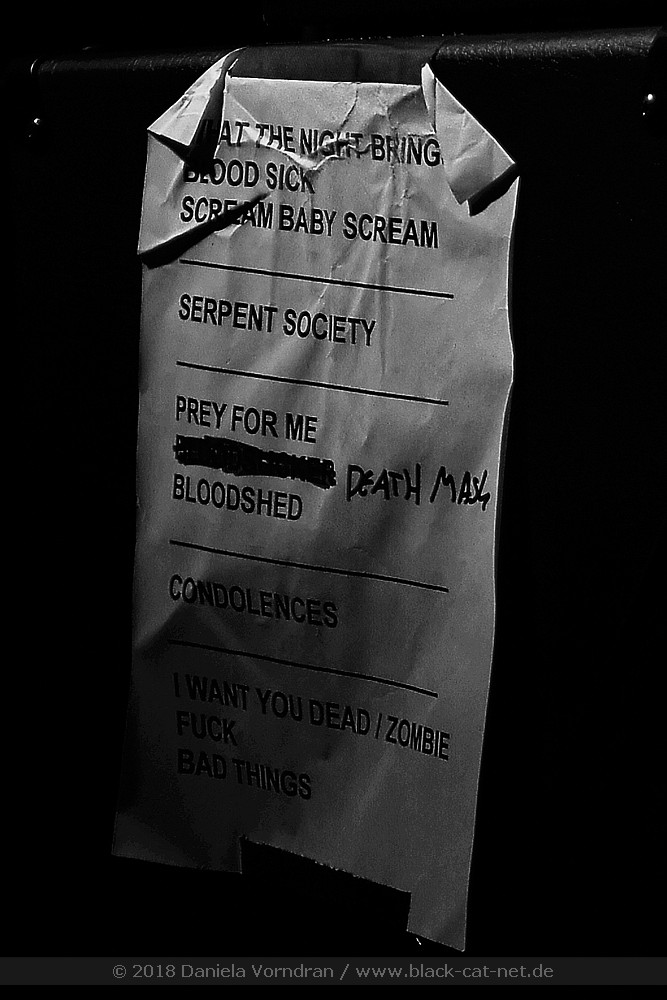 AT THE NIGHT BRING
BLOOD SICK
SCREAM BABY SCREAM
SERPENT SOCIETY
PREY FOR ME
DEATH MASK
BLOODSHED
CONDOLENCES
I WANT YOU DEAD / ZOMBIE
FUCK
BAD THINGS
© 2018 Daniela Vorndran / www.black-cat-net.de